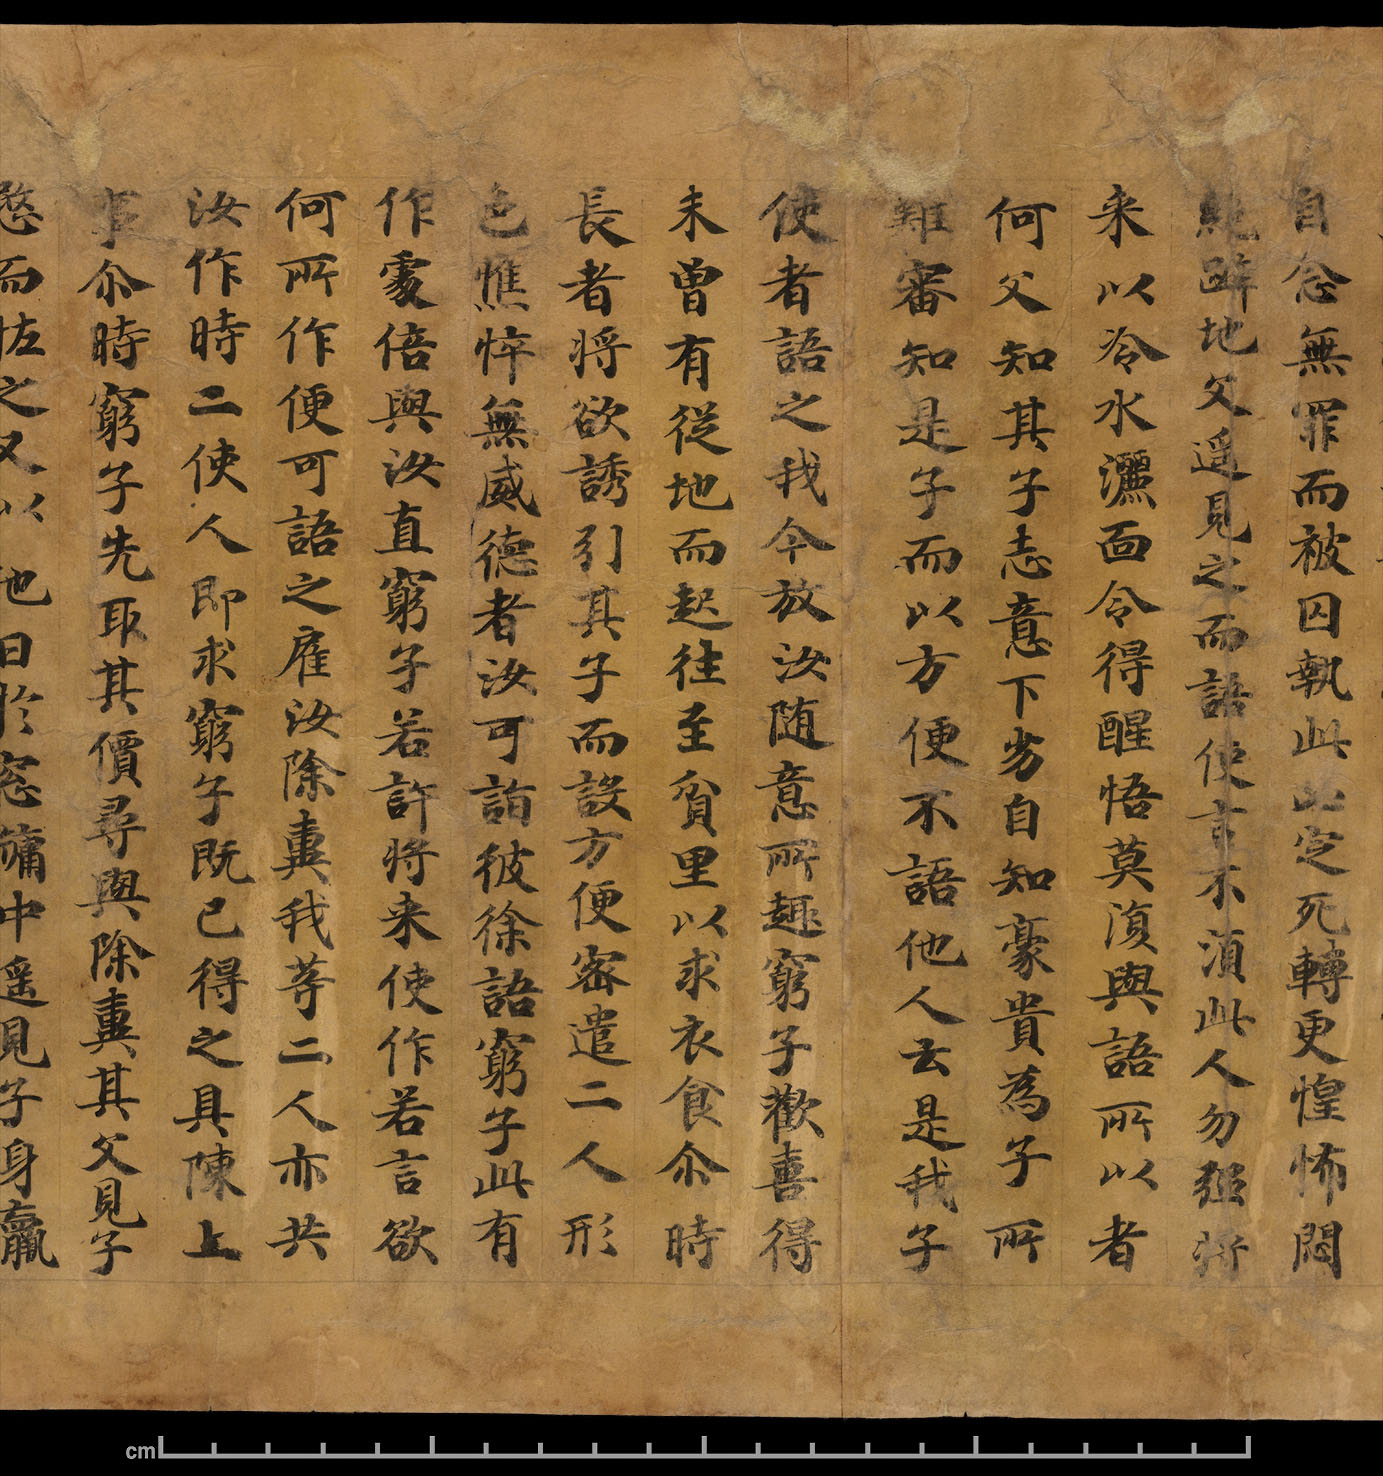 自念無罪而被囚執此必定死轉更惶怖悶
絶躃地父遥見之而語使言不湏此人勿強将
来以冷水灑面令得醒悟莫湏與語所以者
何父知其子志意下劣自知豪貴為子所
難審知是子而以方便不語他人云是我子
使者語之我今放汝随意所趣窮子歡喜得
未曽有従地而起往至貧里以求衣食尒時
長者将欲誘引其子而設方便密遣二人形
色憔悴無威德者汝可詣彼徐語窮子此有
作䖏倍與汝直窮子若許将来使作若言欲
何所作便可語之雇汝除糞我等二人亦共
汝作時二使人即求窮子既已得之具陳上
事尒時窮子先取其價尋與除糞其父見子
愍而怪之又以他日於窓牖中遥見子身羸
cm